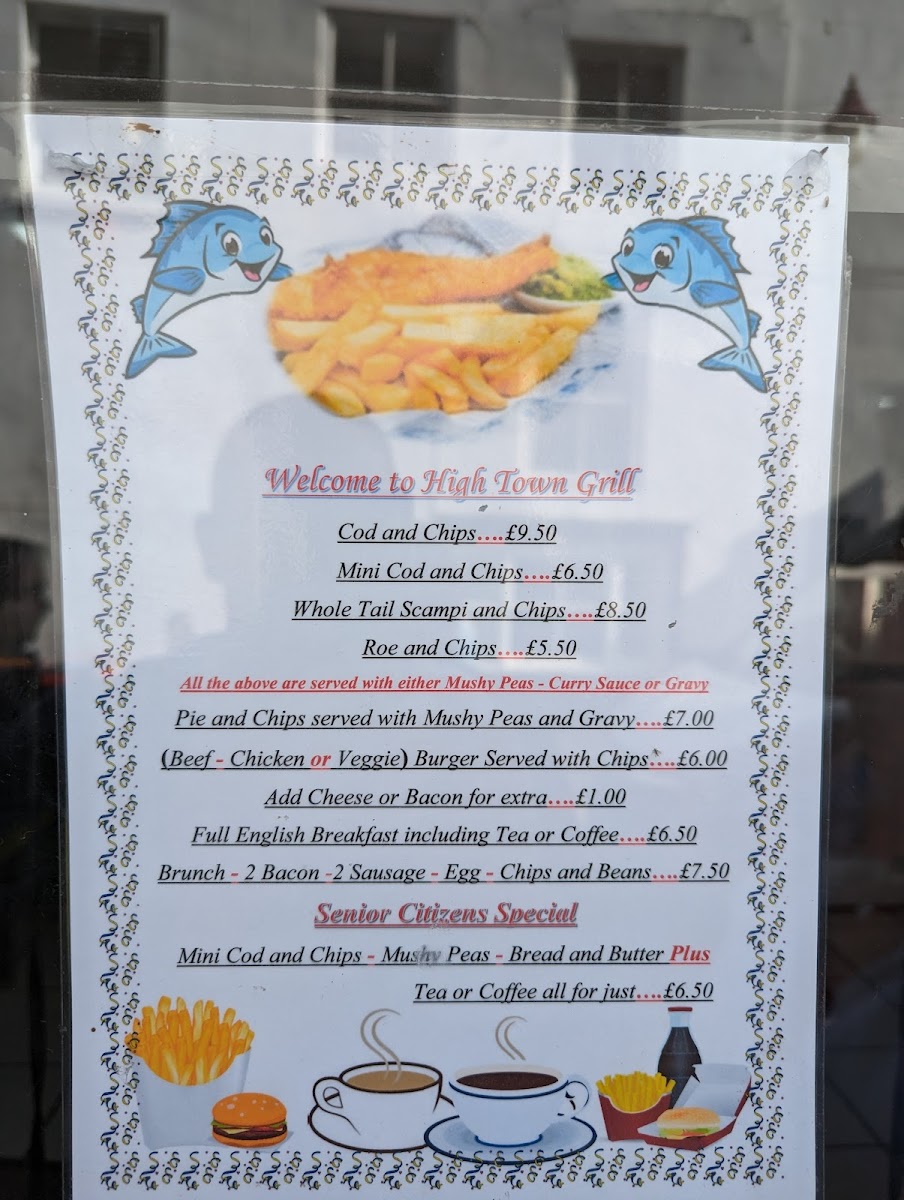 Welcome to High Town Grill
Cod and Chips....£9.50
Mini Cod and Chips....£6.50
Whole Tail Scampi and Chips....£8.50
Roe and Chips....£5.50
All the above are served with either Mushy Peas - Curry Sauce or Gravy
Pie and Chips served with Mushy Peas and Gravy....£7.00
(Beef - Chicken or Veggie) Burger Served with Chips....£6.00
Add Cheese or Bacon for extra....£1.00
Full English Breakfast including Tea or Coffee....£6.50
Brunch - 2 Bacon -2 Sausage - Egg - Chips and Beans....£7.50
Senior Citizens Special
Mini Cod and Chips - Mushy Peas - Bread and Butter Plus
Tea or Coffee all for just....£6.50